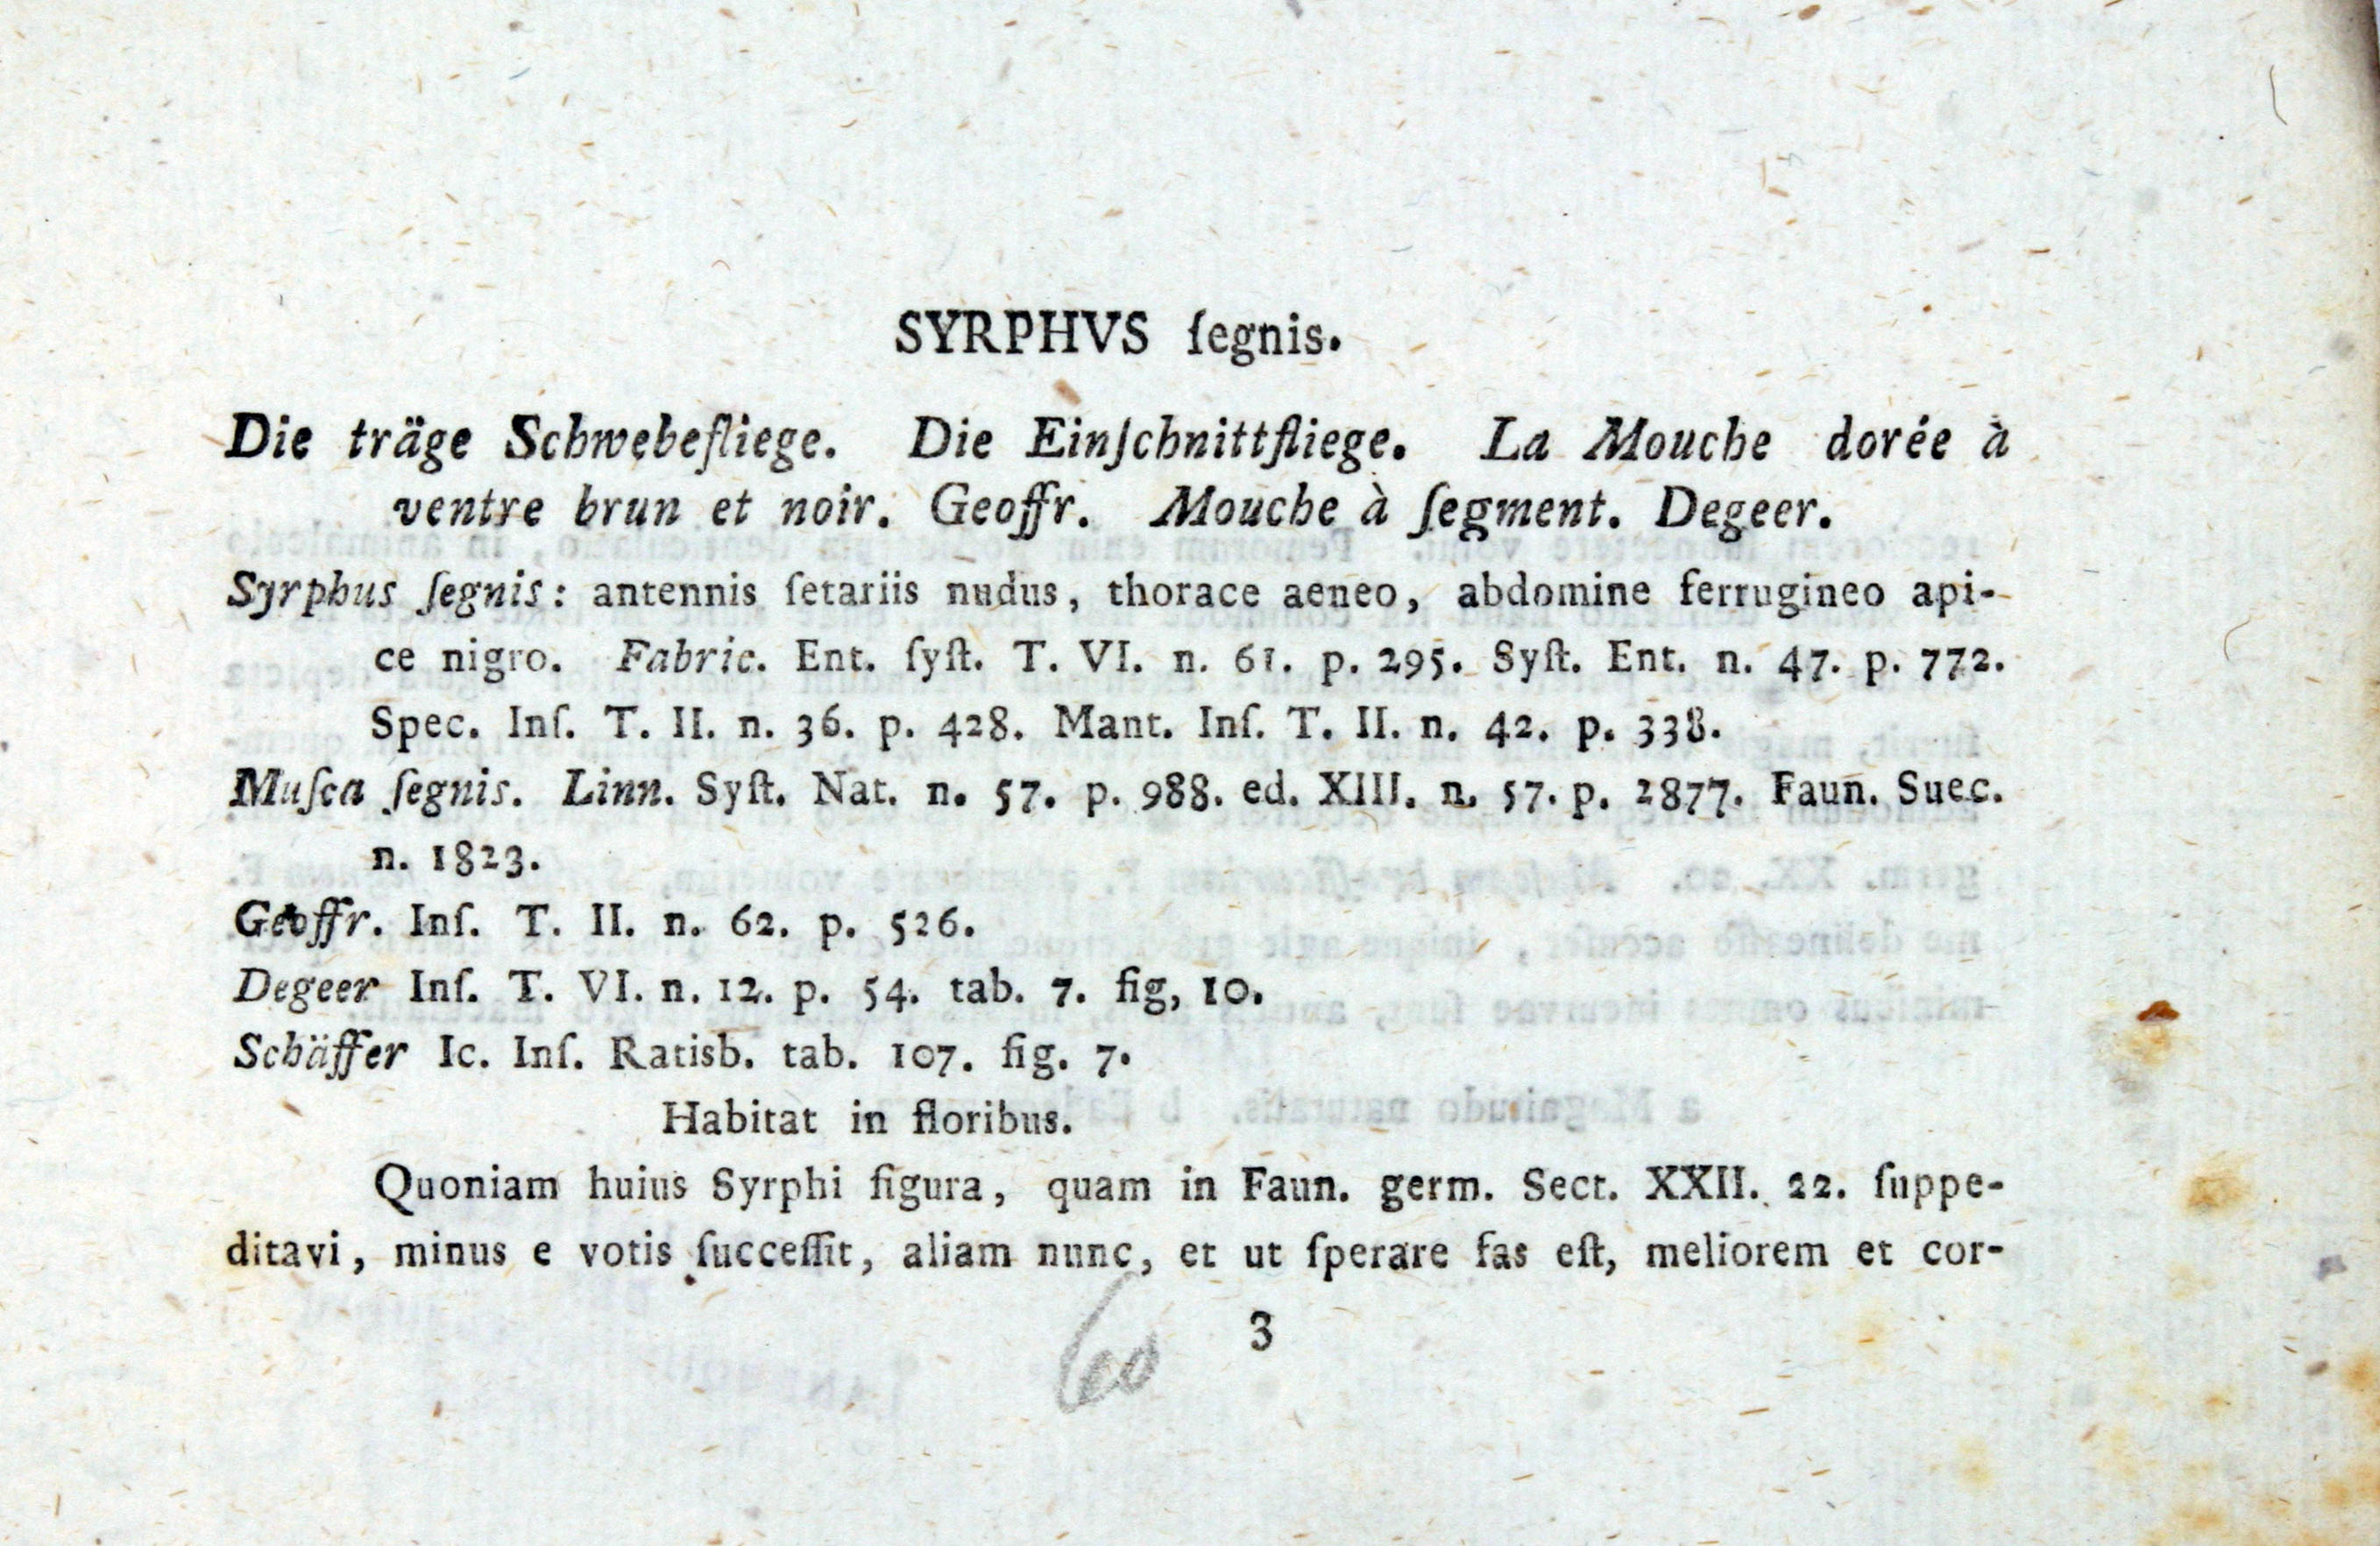 SYRPHVS ſegnis.
Die träge Schwebefliege. Die Einſchnittfliege. La Mouche dorée à
ventre brun et noir. Geoffr. Mouche à ſegment. Degeer.
Syrphus ſegnis: antennis ſetariis nudus, thorace aeneo, abdomine ferrugineo api-
ce nigro. Fabric. Ent. ſyſt. T. VI. n. 61. p. 295. Syſt. Ent. n. 47. p. 772.
Spec. Inſ. T. II. n. 36. p. 428. Mant. Inſ. T. II. n. 42. p. 338.
Muſca ſegnis. Linn. Syſt. Nat. n. 57. p. 988. ed. XIII. n. 57. p. 2877. Faun. Suec.
n. 1823.
Geoffr. Inſ. T. II. n. 62. p. 526.
Degeer Inſ. T. VI. n. 12. p. 54. tab. 7. fig, 10.
Schäffer Ic. Inſ. Ratisb. tab. 107. fig. 7.
Habitat in floribus.
Quoniam huius Syrphi figura, quam in Faun. germ. Sect. XXII. 22. ſuppe-
ditavi, minus e votis ſucceſſit, aliam nunc, et ut ſperare fas eſt, meliorem et cor-
3